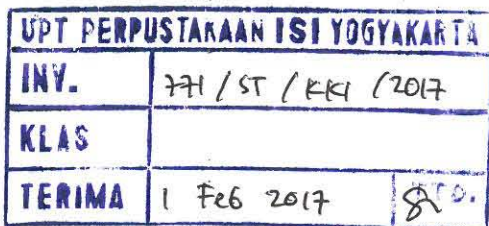 UPT PERPUSTAKAAN ISI YOGYAKARTA
INV. 771 / ST / KKI / 2017
KLAS
TERIMA 1 Feb 2017 TTD.